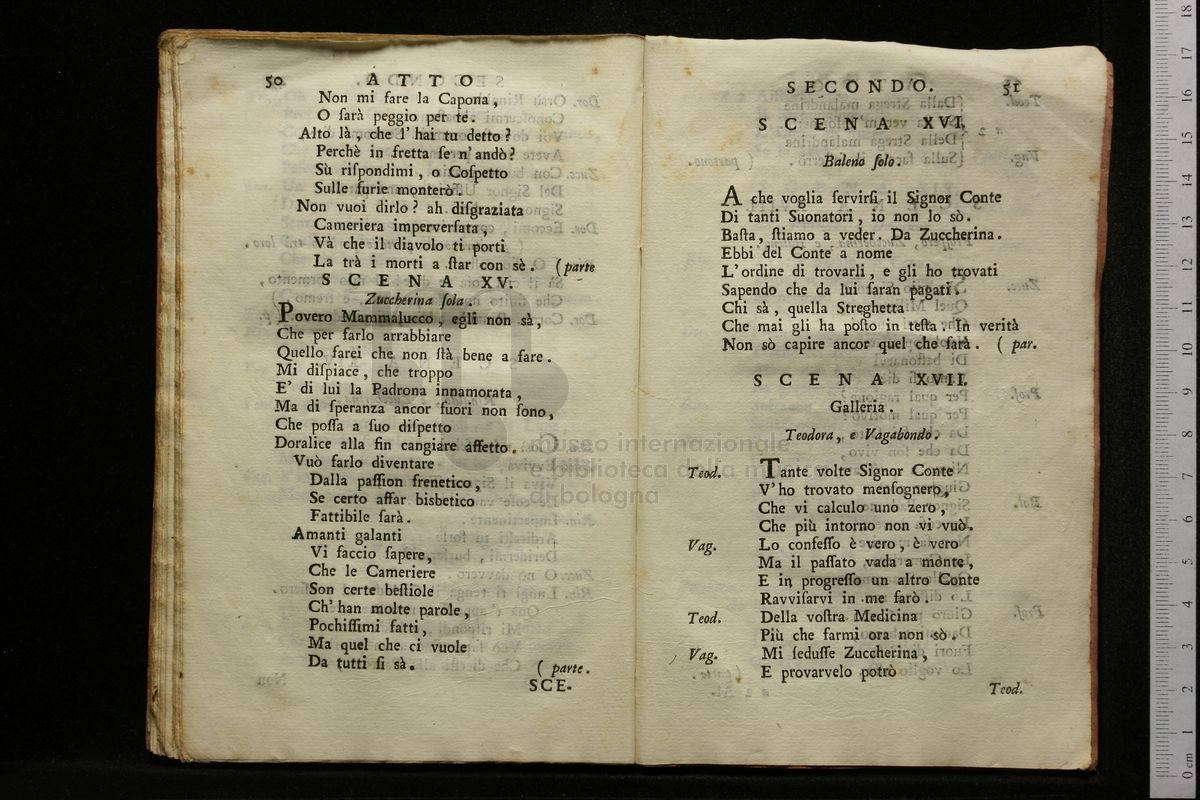 50 ATTO
Non mi fare la Capona,
O sarà peggio per te.
Alto là, che l'hai tu detto?
Perchè in fretta se n'andò?
Sù rispondimi, o Cospetto
Sulle furie monterò.
Non vuoi dirlo? ah disgraziata
Cameriera imperversata,
Và che il diavolo ti porti
La trà i morti a star con sè. (parte
SCENA XV.
Zuccherina sola.
Povero Mammalucco, egli non sà,
Che per farlo arrabbiare
Quello farei che non stà bene a fare.
Mi dispiace, che troppo
E' di lui la Padrona innamorata,
Ma di speranza ancor fuori non sono,
Che possa a suo dispetto
Doralice alla fin cangiare affetto.
Vuò farlo diventare
Dalla passion frenetico,
Se certo affar bisbetico
Fattibile sarà.
Amanti galanti
Vi faccio sapere,
Che le Cameriere
Son certe bestiole
Ch'han molte parole,
Pochissimi fatti,
Ma quel che ci vuole
Da tutti si sà. (parte.
SCE-
SECONDO. 51
SCENA XVI.
Baleno solo.
A che voglia servirsi il Signor Conte
Di tanti Suonatori, io non lo sò.
Basta, stiamo a veder. Da Zuccherina.
Ebbi del Conte a nome
L'ordine di trovarli, e gli ho trovati
Sapendo che da lui saran pagati.
Chi sà, quella Streghetta
Che mai gli ha posto in testa. In verità
Non sò capire ancor quel che sarà. (par.
SCENA XVII.
Galleria.
Teodora, e Vagabondo.
Teod. Tante volte Signor Conte
V'ho trovato mensognero,
Che vi calculo uno zero,
Che più intorno non vi vuò.
Vag. Lo confesso è vero, è vero
Ma il passato vada a monte,
E in progresso un altro Conte
Ravvisarvi in me farò.
Teod. Della vostra Medicina
Più che farmi ora non sò.
Vag. Mi sedusse Zuccherina,
E provarvelo potrò
Teod.
museo internazionale
e biblioteca della musica
di bologna
0 cm 1 2 3 4 5 6 7 8 9 10 11 12 13 14 15 16 17 18